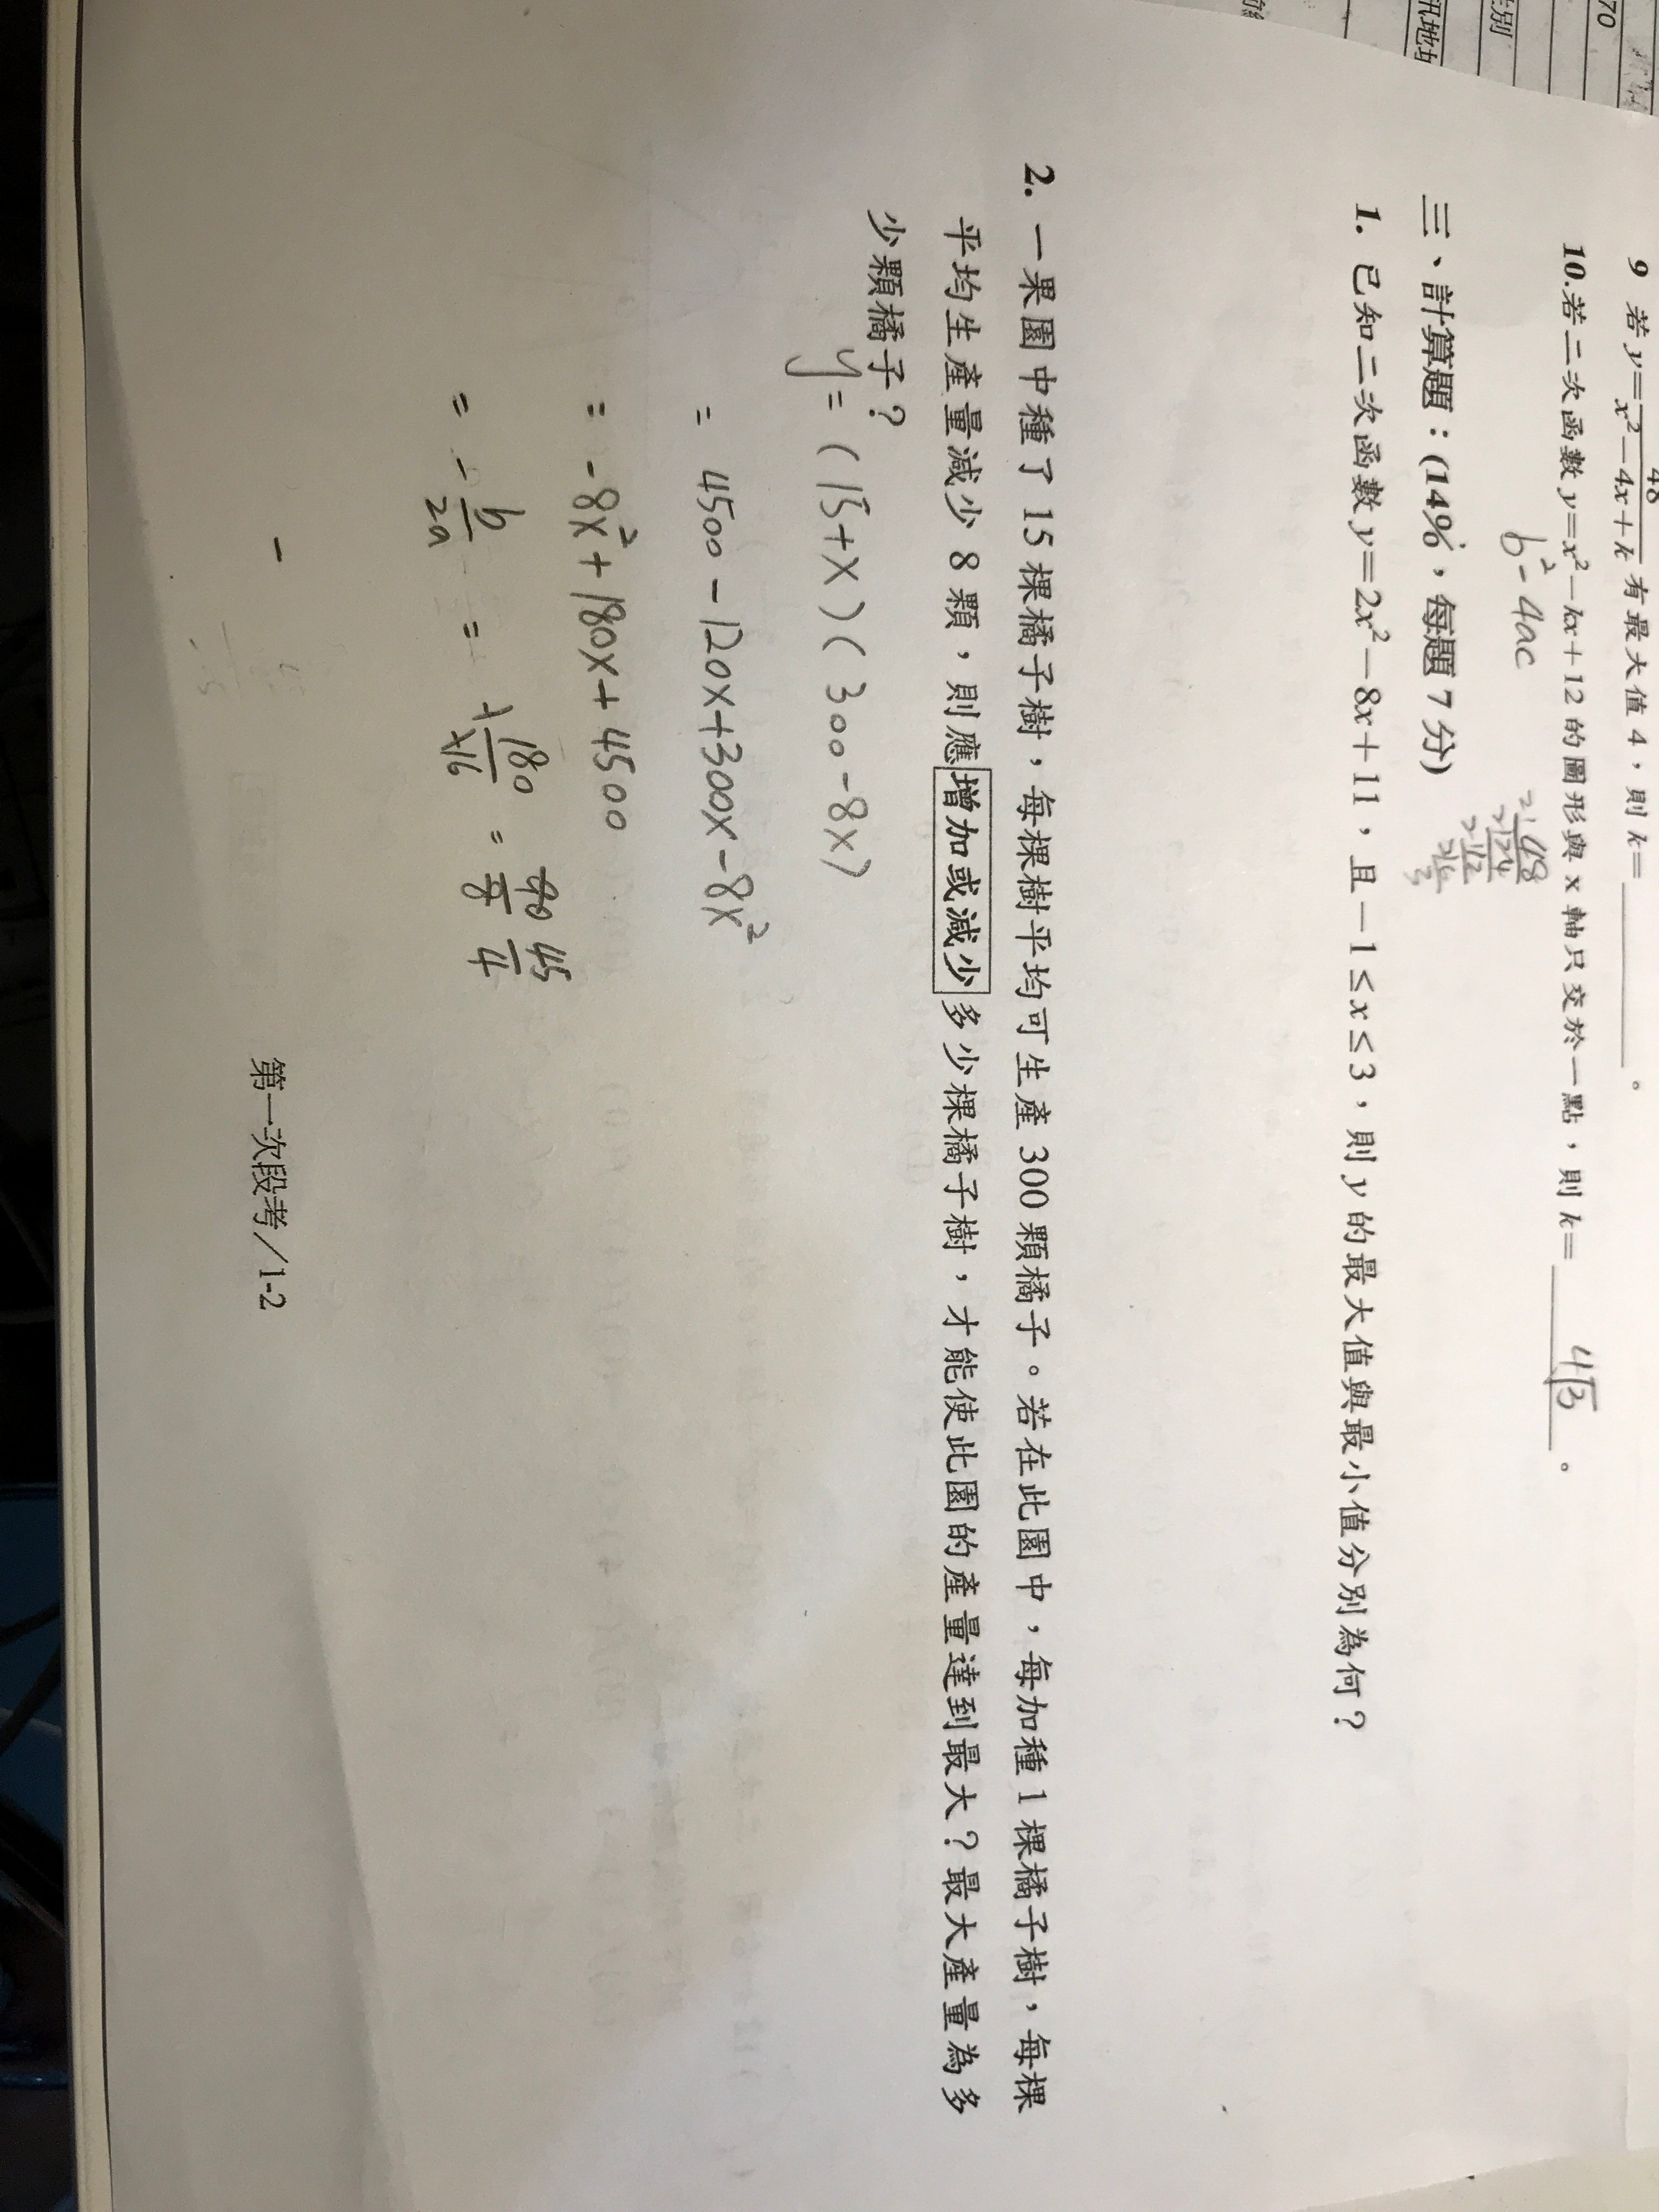 70
別
訊地均
9 若 y=48/(x²-4x+k) 有最大值 4,則 k=________。
10.若二次函數 y=x²-kx+12 的圖形與 x 軸只交於一點,則 k= 4√3 。
b²-4ac
2 48
2 24
2 12
三、計算題:(14%,每題 7 分)
1. 已知二次函數 y=2x²-8x+11,且 -1≤x≤3,則 y 的最大值與最小值分別為何?
2. 一果園中種了 15 棵橘子樹,每棵樹平均可生產 300 顆橘子。若在此園中,每加種 1 棵橘子樹,每棵
平均生產量減少 8 顆,則應增加或減少多少棵橘子樹,才能使此園的產量達到最大?最大產量為多
少顆橘子?
y=(15+x)(300-8x)
= 4500-120x+300x-8x²
= -8x²+180x+4500
= -b/2a = +180/+16 = 90/8 45/4
-
第一次段考/1-2